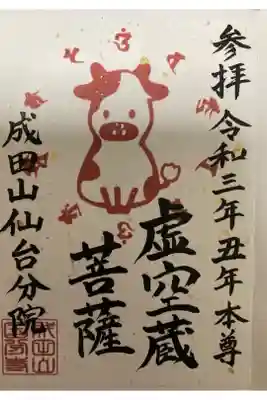 参拝 令和三年丑年本尊
虚空蔵
菩薩
成田山仙台分院